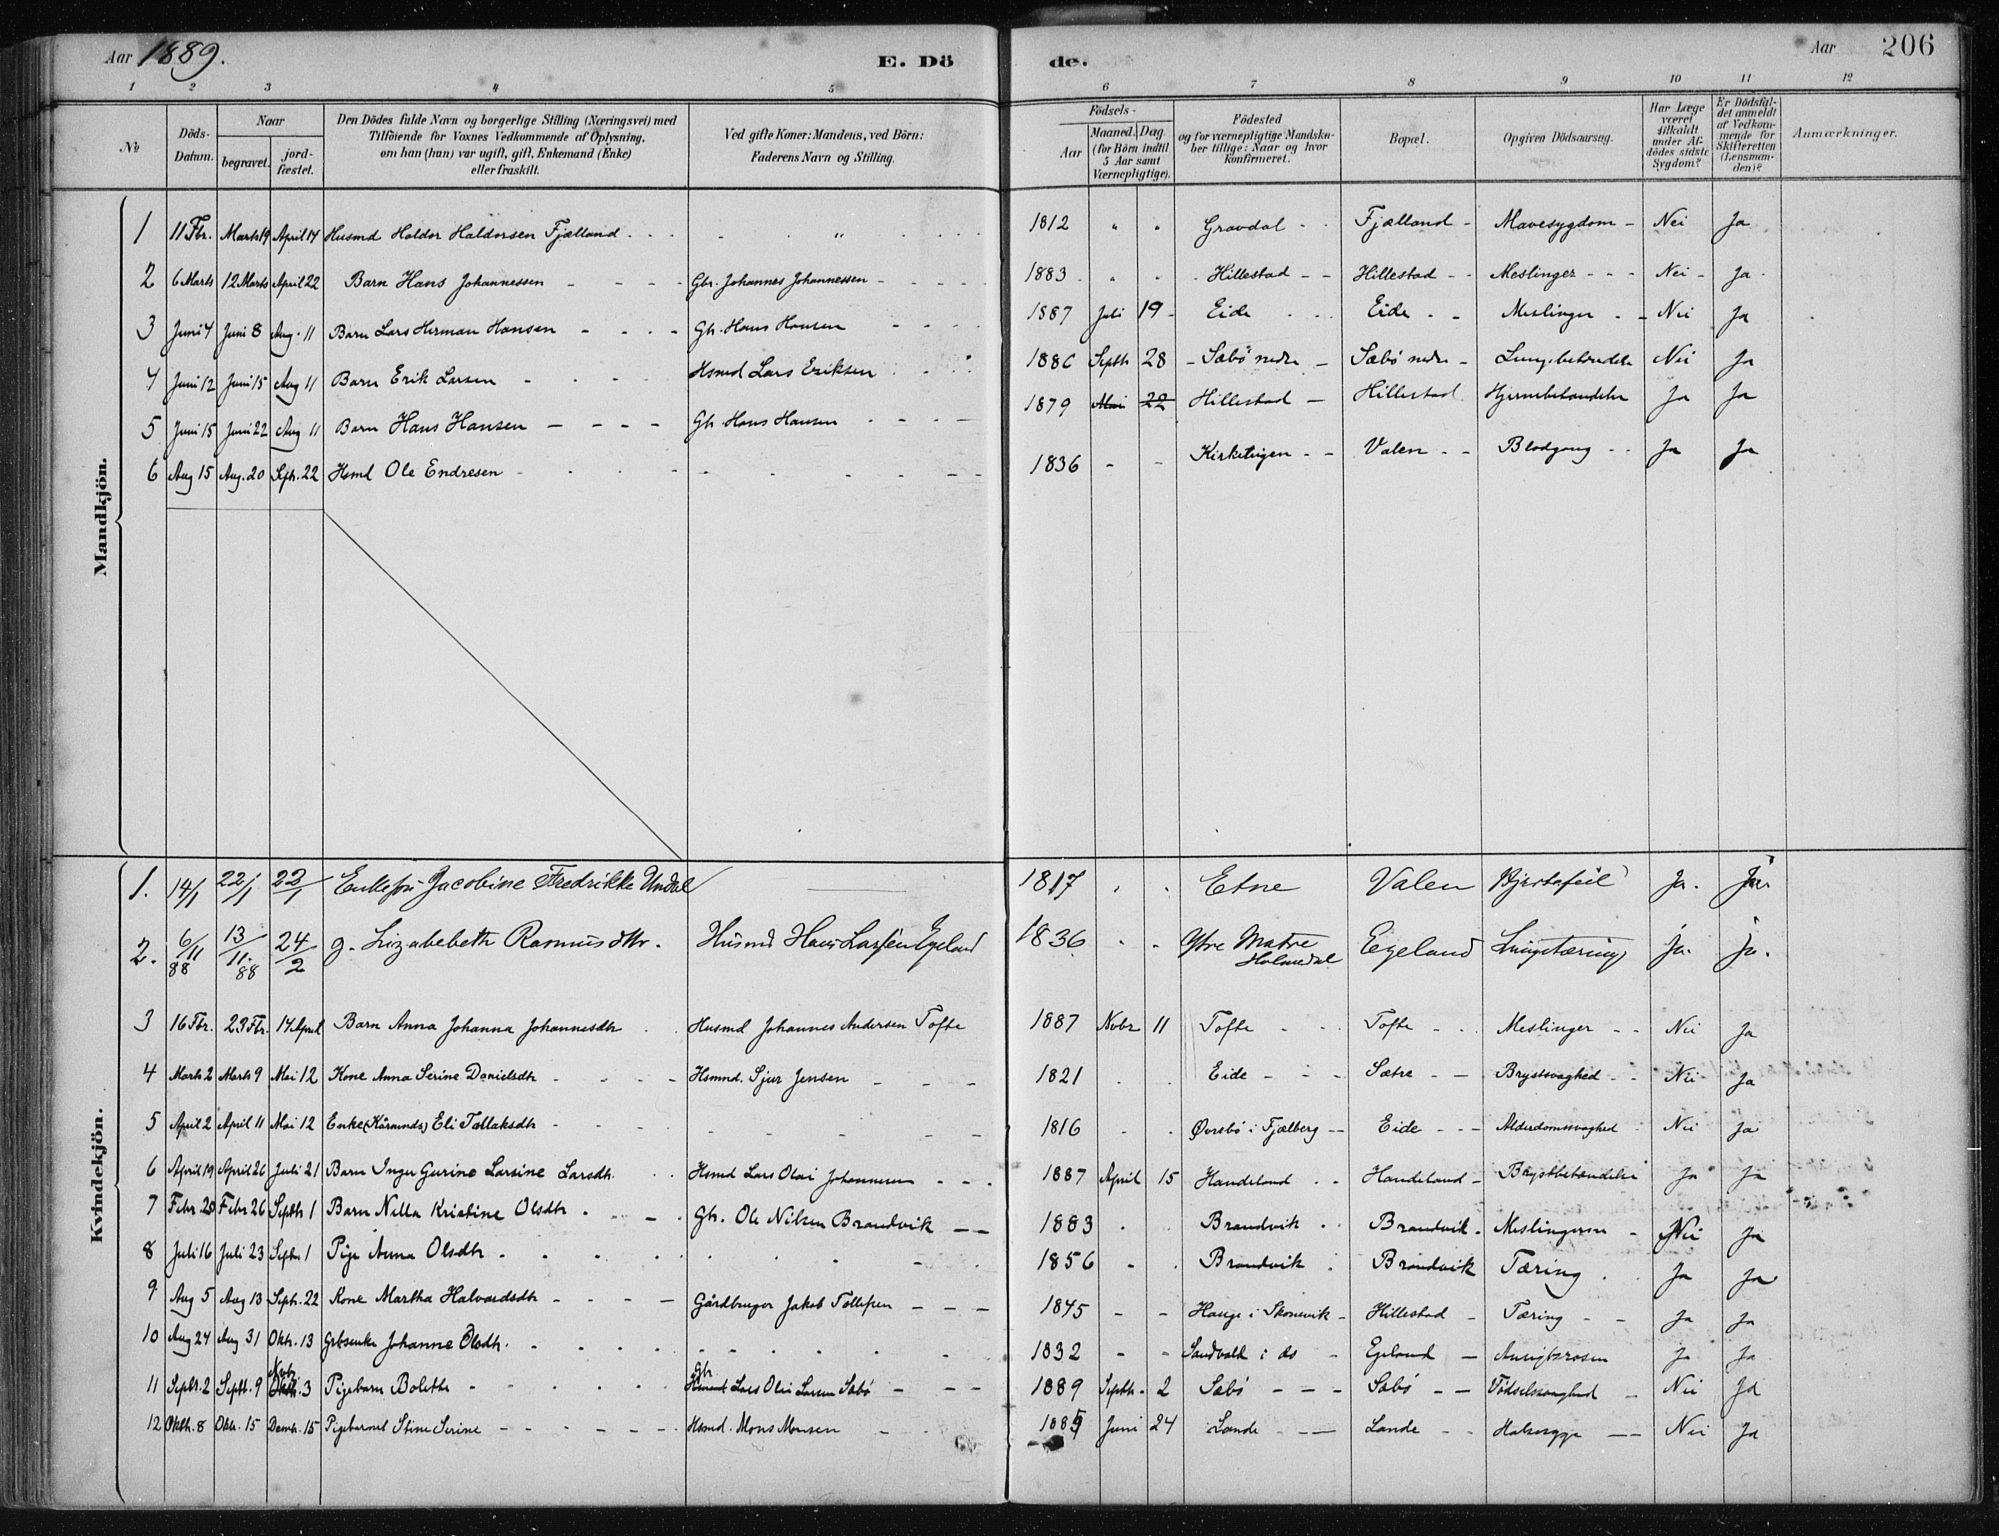 Aar 1889. E. Dö de. Aar 206
1 2 3 4 5 6 7 8 9 10 11 12
№ Döds-Datum. Naar begravet. jordfæstet. Den Dödes fulde Navn og borgerlige Stilling (Næringsvei) med Tilföiende for Voxnes Vedkommende af Oplysning, om han (hun) var ugift, gift, Enkemand (Enke) eller fraskilt. Ved gifte Koner: Mandens, ved Börn: Faderens Navn og Stilling. Födsels- Aar Maaned. Dag. (for Börn indtil 5 Aar samt Værnepligtige). Födested og for værnepligtige Mandskaber tillige: Naar og hvor Konfirmeret. Bopæl. Opgiven Dödsaarsag. Har Læge været tilkaldt under Afdödes sidste Sygdom? Er Dödsfaldet anmeldt af Vedkommende for Skifteretten (Lensmanden)? Anmærkninger.
Mandkjön.
1 11 Fbr. Marts 19 April 14 Husmd Haldor Haldorsen Fjælland - - - " - - - 1812 " " Gravdal - - Fjælland - Mavesygdom - Nei Ja
2 6 Marts 12 Marts April 22 Barn Hans Johannessen - - - - Gbr. Johannes Johannessen - - - - 1883 " " Hillestad - - Hillestad - - Meslinger - - - Nei - Ja
3 Juni 4 Juni 8 Aug. 11 Barn Lars Herman Hansen - - - - Gbr. Hans Hansen - - - - 1887 Juli 19 - Eide - - - Eide - - Meslinger - - Nei Ja
4 Juni 12 Juni 15 Aug 11 Barn Erik Larsen - - - - Hsmd Lars Eriksen - - - 1886 Septb 28 - Sæbö nedre - Sæbö nedre - Lungebetændelse Nei Ja
5 Juni 15 Juni 22 Aug 11 Barn Hans Hansen - - - - Gbr Hans Hansen - - - - 1879 Mai 22 Hillestad - Hillestad Hjernebetændelse Ja Ja
6 Aug 15 Aug. 20 Sptr. 22 Hsmd Ole Endresen - - - - - - - - 1836 - - Kirketeigen - - Valen - - Blodgang - - Ja Ja
Kvindekjön.
1. 14/1 22/1 22/1 Jacobine Fredrikke Undal 1817 " " Etne Valen Hjertefeil Ja. Ja.
2. 6/11 88 13/11 88 24/2 g. Lizabebeth Rasmusdtr. Husmd Hans Larsen Egeland 1836 " " Ytre Matre Holmedal Egeland Lungetæring ja. ja.
3 16 Fbr. 23 Fbr. 14 April Barn Anna Johanna Johannesdtr - Husmd Johannes Andersen Tofte 1887 Novbr 11 Tofte - - - Tofte - - Meslinger - - Nei Ja
4 Marts 2 Marts 9 Mai 12 Kone Anna Serine Danielsdtr - - - - Hsmnd. Sjur Jensen - - - 1821 - - Eide - - - Sætre - - Brystsvaghed - - Nei Ja
5 April 2 April 11 Mai 12 Enke (Kårmnds) Eli Tollaksdtr - - - - - - - 1816 - - Øvrebö i Fjælberg - - Eide - - - Alderdomssvaghed - Nei Ja
6 April 19 April 26 Juli 21 Barn Inger Gurine Larsine Larsdtr. - - Hsmd Lars Olai Johannesen - - - 1887 April 15 Handeland - - Handeland - Brystbetændelse Ja Ja
7 Febr. 20 Febr 26 Septbr 1 Barn Nilla Kristine Olsdtr - - - Gbr. Ole Nilsen Brandvik - - 1883 - - Brandvik - - Brandvik - Meslingerne - Nei Ja
8 Juli 16 Juli 23 Septbr 1 Pige Anna Olsdtr - - - - - - - - - 1856 - - Brandvik - Brandvik Tæring - Ja Ja
9 Aug 5 Aug 13 Septr. 22 Kone Martha Halvardsdtr - - - - Gårdbruger Jakob Tollefsen - - - 1845 - - Hauge i Skonevik - Hillestad - Tæring - - Ja Ja
10 Aug 24 Aug 31 Oktr. 13 Gbrsenke Johanne Olsdtr. - - - - - - - - 1832 - - Sandvold i do - Egeland - Ansigtsrosen Ja Ja
11 Septbr. 2 Septb. 9 Novbr Oktb. 3 Pigebarn Bolette - - - - - Gbr Hsmd Lars Olai Larsen Sæbö - - - 1889 Septbr - 2 Sæbö - - - Sæbö - - Födselssvaghed - Nei Ja
12 Oktbr. 8 Oktr. 15 Decmbr. 15 Pigebarnet Stine Serine - - - - - Hsmd. Mons Monsen - - - Juni 24 Lande - - - Lande - - Halssyge - - Nei Ja